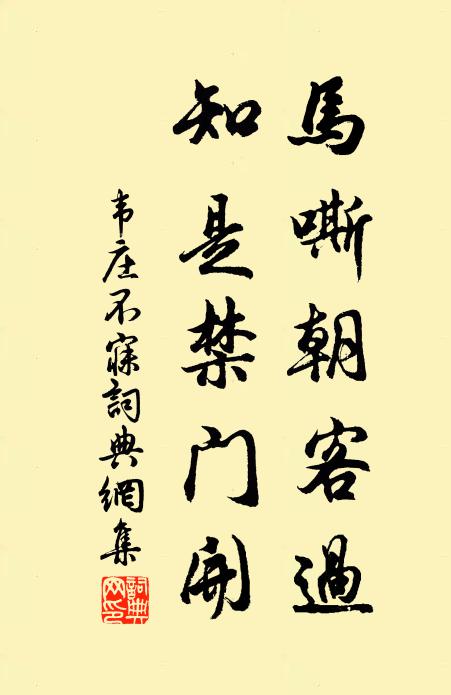 馬嘶朝客過
知是禁门開
韦庄不寐詞典網集
詞典網印